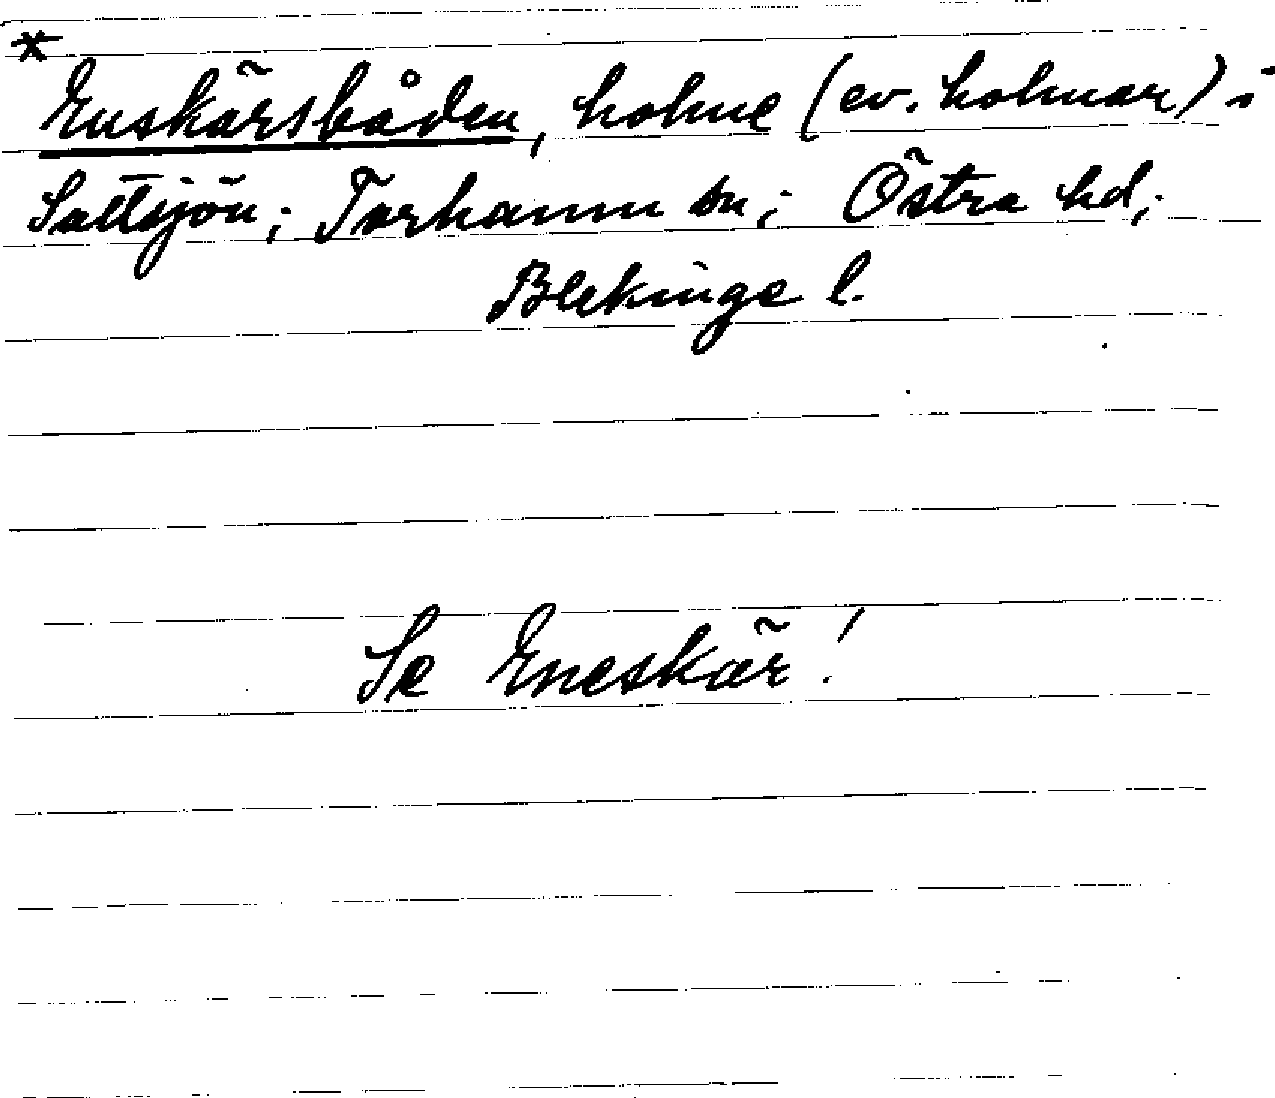 * Enskärsbåden, holme (ev. holmar) i
Saltsjön; Torhamn sn; Östra hd;
Blekinge l.
Se Eneskär!